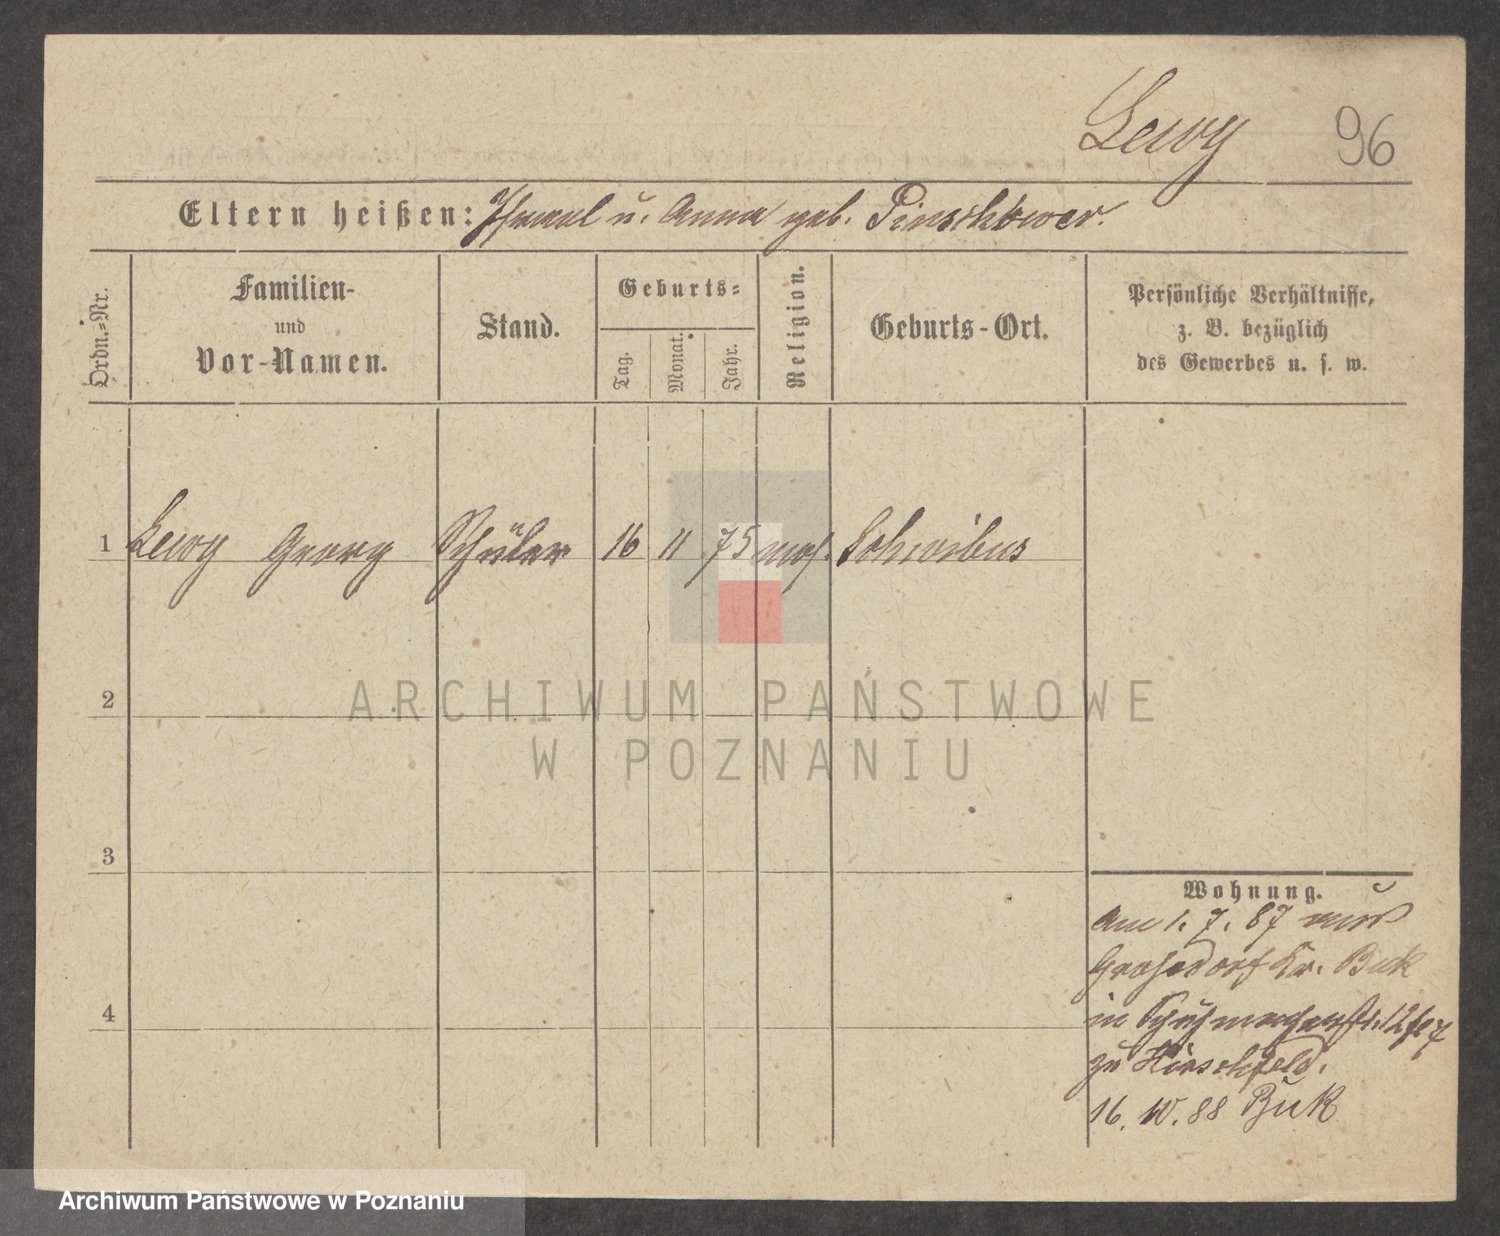 Lewy 96
Eltern heißen: Israel u. Anna geb. Pinschower.
Ordn.-Nr.
Familien-
und
Vor-Namen.
Stand.
Geburts-
Tag.
Monat.
Jahr.
Religion.
Geburts-Ort.
Persönliche Verhältnisse,
z. B. bezüglich
des Gewerbes u. s. w.
1 Lewy Georg Schüler 16 11 75 mos. Schwibus
2
ARCHIWUM PAŃSTWOWE
W POZNANIU
3
Wohnung.
Am 1. 7. 87 aus
Grosdorf Kr. Buk
in Schuhmacherstr. 12
zu Hirschfeld.
4
16. 10. 88 Buk
Archiwum Państwowe w Poznaniu